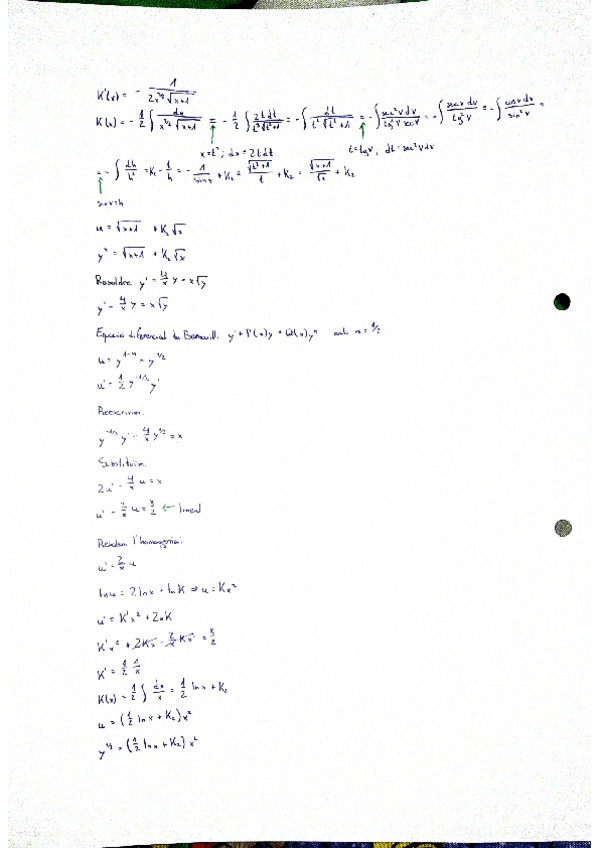 K'(x) = - 1/(2x^{3/2}√(x+1))
K(x) = - 1/2 ∫ dx/(x^{3/2}√(x+1)) = - 1/2 ∫ 2t dt/(t³√(t²+1)) = - ∫ dt/(t²√(t²+1)) = - ∫ sec²v dv/(tg²v secv) = - ∫ secv dv/tg²v = - ∫ cosv dv/sin²v =
x=t² ; dx = 2t dt    t=tgv, dt=sec²v dv
= - ∫ dh/h² = K₂ + 1/h = 1/sinv + K₂ = √(t²+1)/t + K₂ = √(x+1)/√x + K₂
sinv=h
u = √(x+1) + K₂√x
y² = √(x+1) + K₂√x
Resoldre y' = 4/x y + x√y
y' - 4/x y = x√y
Equació diferencial de Bernoulli: y' + P(x)y = Q(x)yⁿ amb n = 1/2
u = y^{1-n} = y^{1/2}
u' = 1/2 y^{-1/2} y'
Reescrivim:
y^{-1/2} y' - 4/x y^{1/2} = x
Substituim:
2u' - 4/x u = x
u' - 2/x u = x/2 ← lineal
Resolem l'homogènia:
u' = 2/x u
ln u = 2 ln x + ln K ⇒ u = Kx²
u' = K'x² + 2xK
K'x² + 2Kx - 2/x Kx² = x/2
K' = 1/2 1/x
K(x) = 1/2 ∫ dx/x = 1/2 ln x + K₂
u = (1/2 ln x + K₂) x²
y^{1/2} = (1/2 ln x + K₂) x²